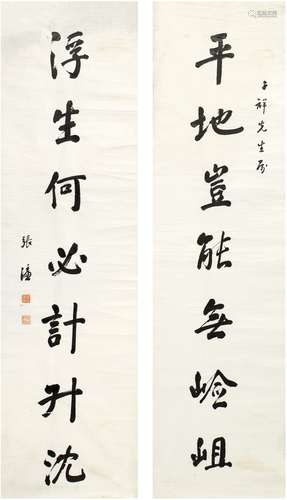 平地豈能無嶮岨
子祥先生屬
浮生何必計升沈
張